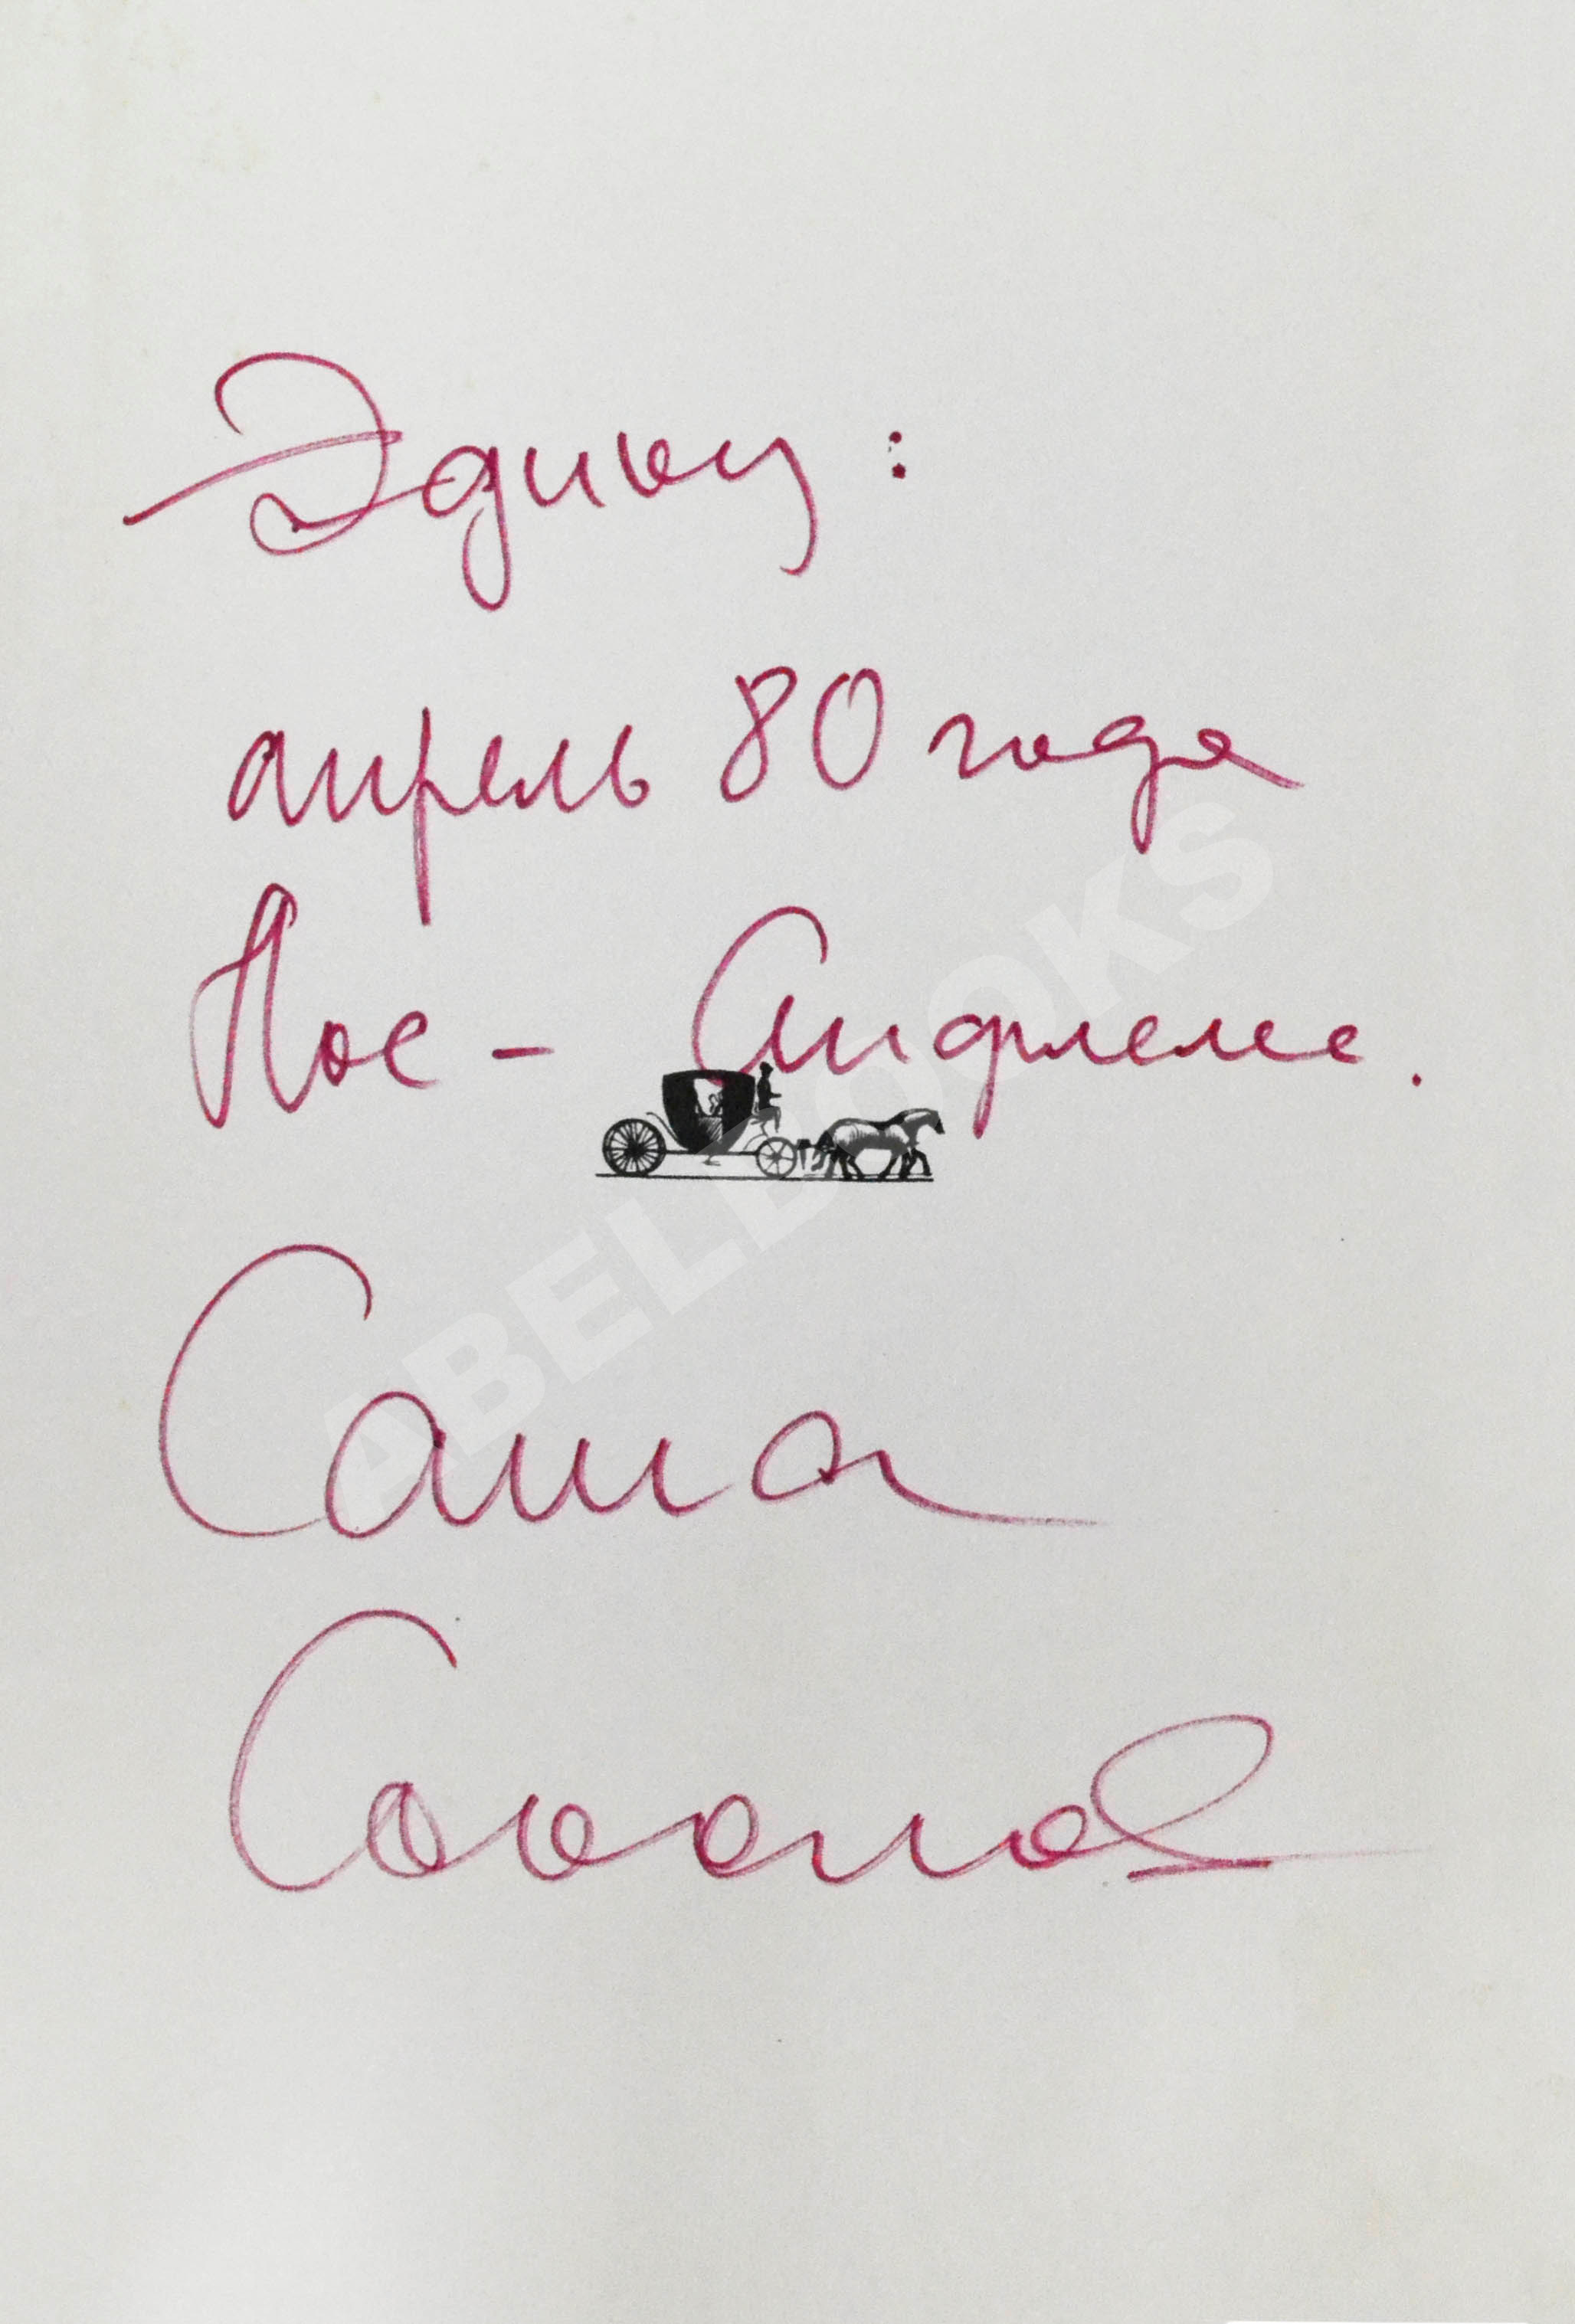 Эдику:
апрель 80 года
Лос-Анджелес.
ABELBOOKS
Саша
Соколов